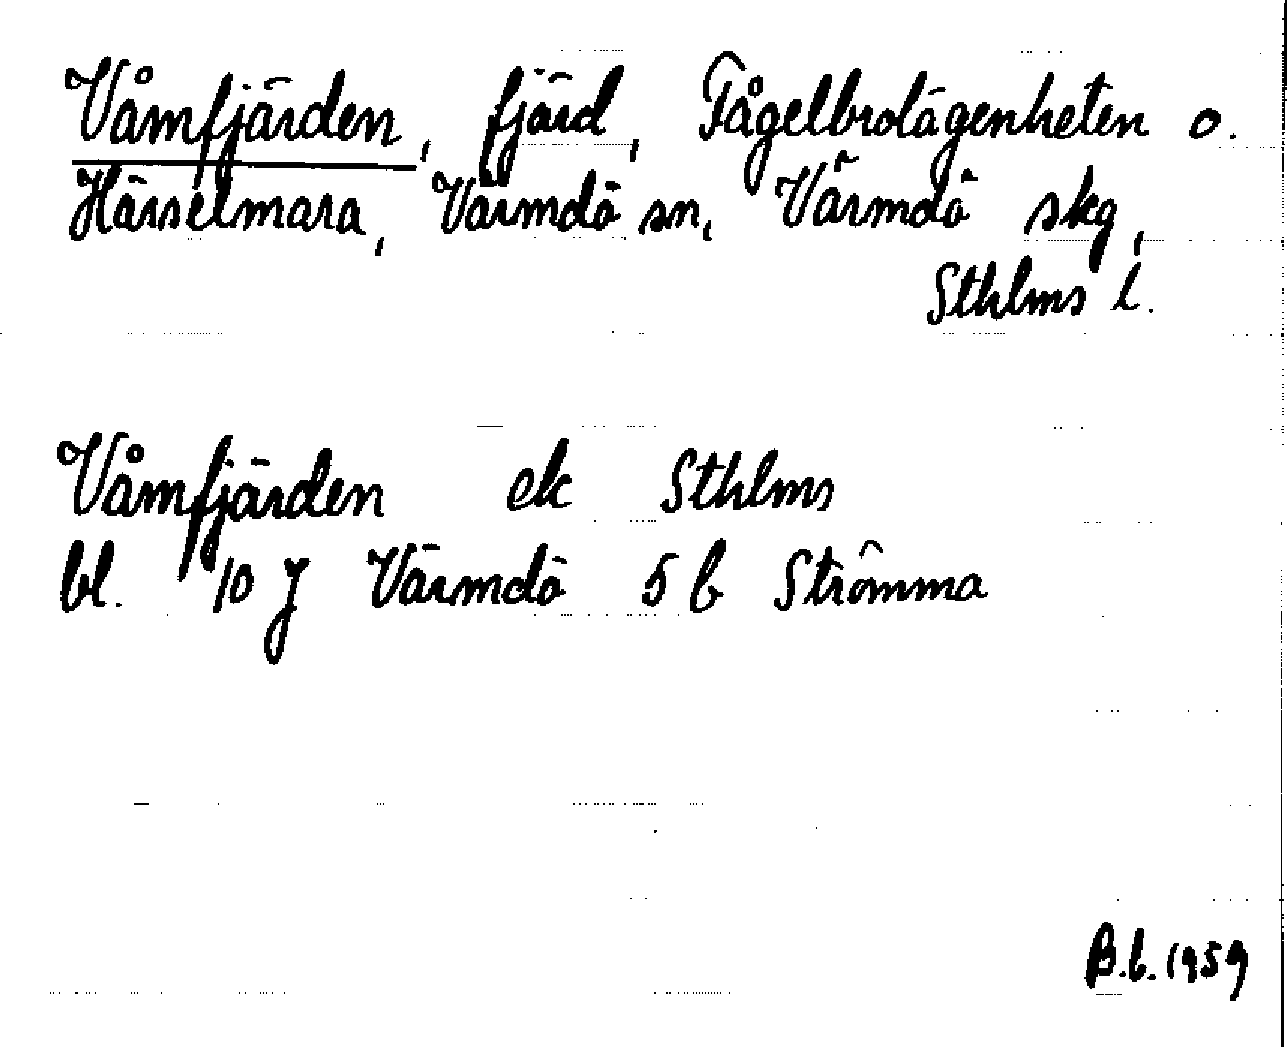 Våmfjärden, fjärd, Fågelbrolägenheten o.
Härselmara, Värmdö sn, Värmdö skg,
Sthlms l.
Våmfjärden ek Sthlms
bl. 10 J Värmdö 5 b Strömma
B.b. 1959